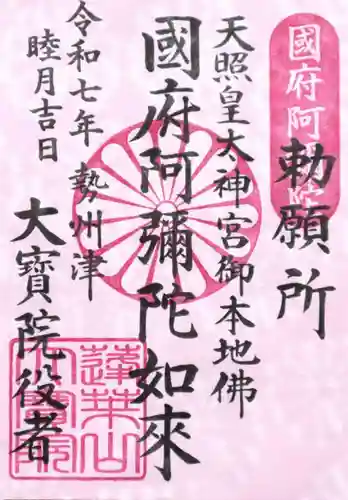 國府阿彌陀
勅願所
天照皇太神宮御本地佛
國府阿彌陀如來
勢州津
大寶院役者
令和七年
睦月吉日
蓮華山
大寶院